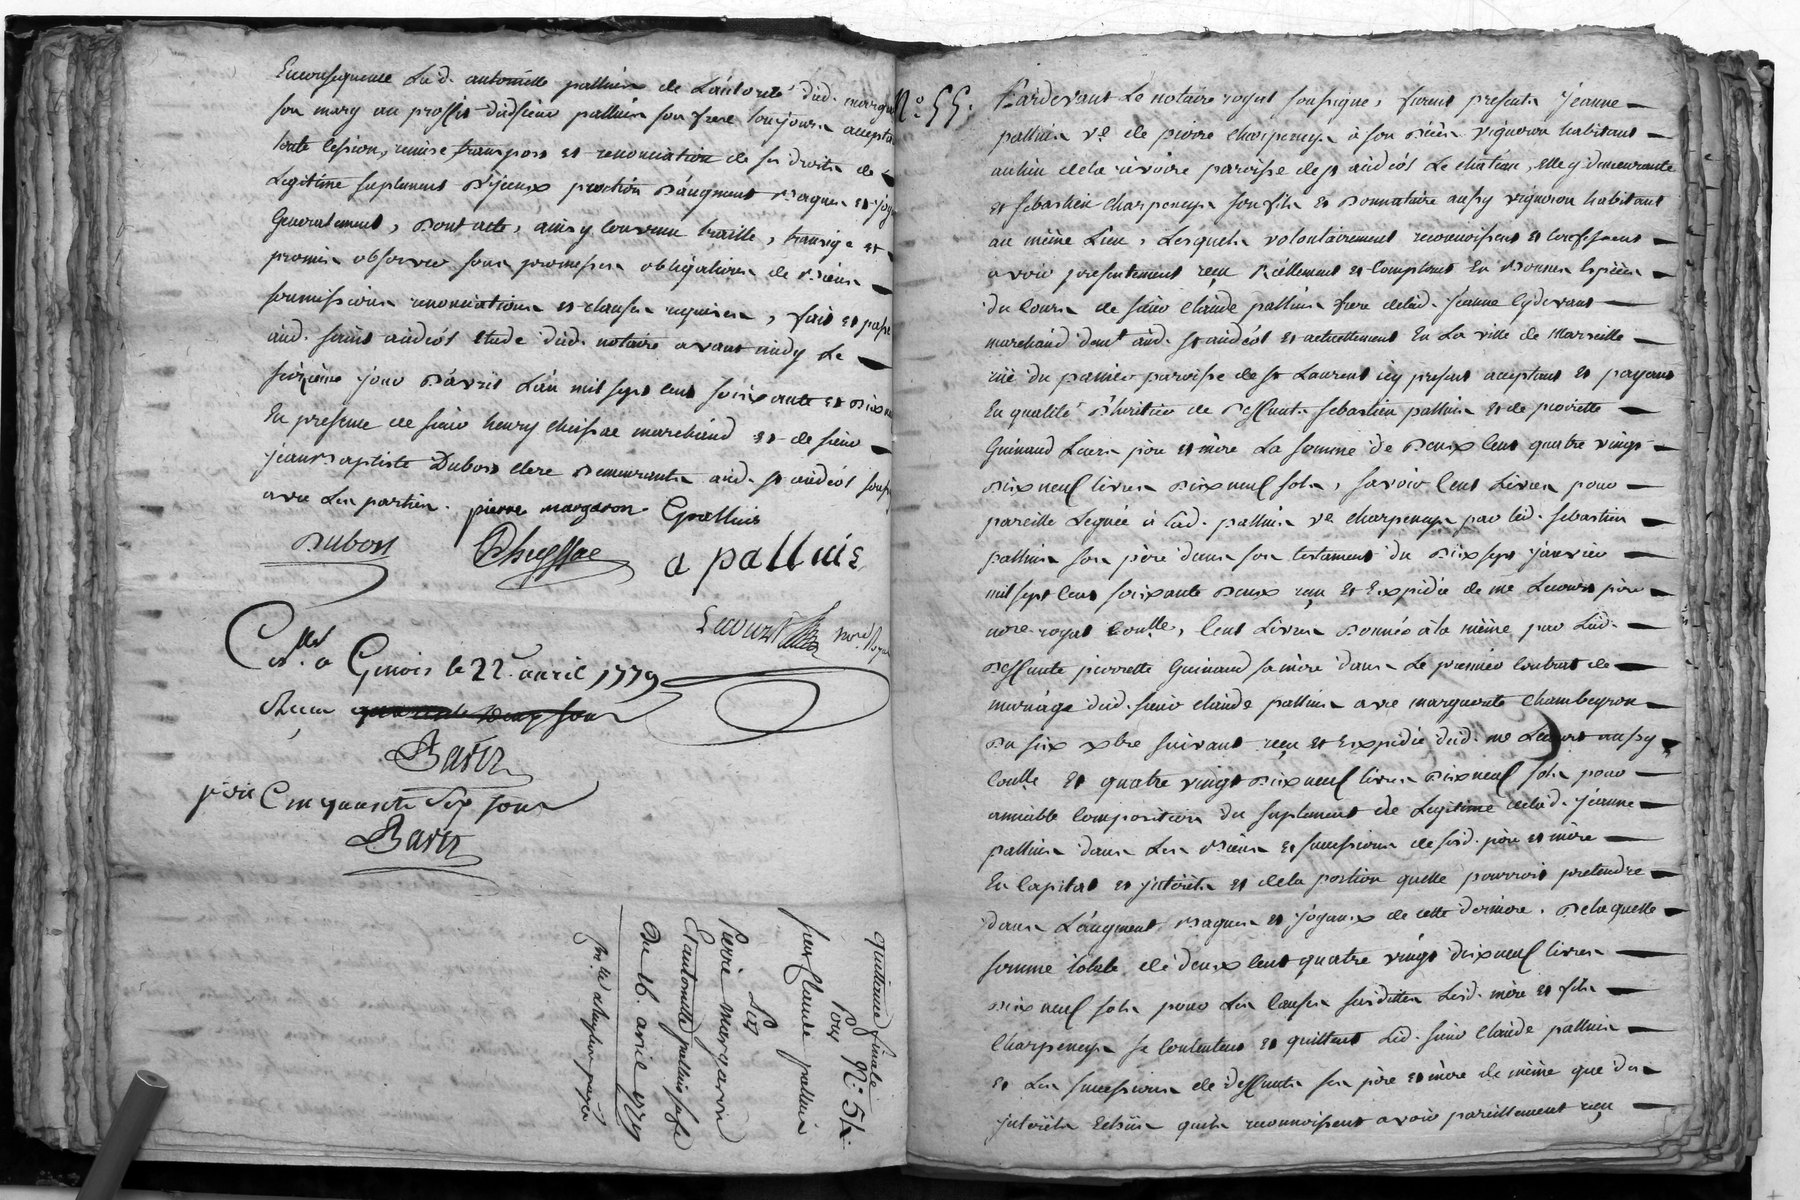 En consequence Lad. antoinette palluis de L'autorité dud. margaron
son mary au proffit dudsieur palluis son frere toujours acceptant
toute cession, remise transport et renonciation de ses droits de
Legitime suplement d'iceux portion d'augment Bagues et joyaux
Generalement, Dont acte, ainsy convenu traitté, transigé et
promis observer sous promesses obligations de Biens
soumissions renonciations et clauses requises, fait et passé
aud. saint andéol etude dud. notaire avant midy le
seizieme jour d'avril L'an mil sept cent soixante et dix neuf
En presence de sieur henry cheissac marchand et de sieur
jean Baptiste Dubost clerc Demeurants aud. st andéol
avec Les parties. pierre margaron Cpalluis
Dubost Cheyssac a palluis
Lecourt nore. Royal
Conllé a Givors le 22 avril 1779
Recu
Bavoz
je dis Cinquante six sous
Bavoz
quittance finale
Pour N.° 54.
sieur Claude palluis
Les
Pierre margaron
Et antoinette palluis sa fe
Du 16. avril 1779
N.° 55.
Pardevant Le notaire royal soussigné, furent presents Jeanne
palluis ve. de pierre charpenay à son decès vigneron habitant
au lieu de la rivoire paroisse de st andéol Le chateau, elle y demeurante
et sebastien charpenay son fils et Donnataire aussy vigneron habitant
au même Lieu, Lesquels volontairement reconnoissent et confessent
avoir presentement reçu Réellement et comptant En Bonnes Espèces
du cours de sieur claude palluis frere de lad. jeanne cydevant
marchand demt aud. st andéol et actuellement En La ville de Marseille
rüe du panier paroisse de st Laurent icy present acceptant et payant
En qualité d'heritier de Deffunts sebastien palluis et de pierrette
Guinand Leurs père et mère La somme de Deux cent quatre vingt
dix neuf livres dix neuf sols, savoir Cent Livres pour
pareille Leguée à lad. palluis ve charpenay par led. sebastien
palluis son père dans son testament du Dix sept janvier
mil sept cent soixante Deux reçu et Expédié de me Lecourt père
nore. royal Conllé, Cent Livres Donnés à la même par Lad.
Deffunte pierrette Guinand sa mère dans Le premier contrat de
mariage dud. sieur claude palluis avec marguerite Chambeyron
Du six xbre suivant reçu et Expédié dud. me Lecourt aussy
Conllé. et quatre vingt dix neuf livres dix neuf sols pour
amiable Composition du suplement de Legitime de lad. jeanne
palluis dans Les Biens et successions de sesd. père et mère
En Capital et jnterêts et de la portion quelle pourroit pretendre
dans L'augment Bagues et joyaux de cette derniere. De laquelle
somme totale de deux cent quatre vingt dix neuf livres
dix neuf sols pour Les causes susdittes Lesd. mère et fils
Charpenay se contentent et quittent Led. sieur Claude palluis
et Les successions de deffunts ses père et mère de même que des
jnterêts Echûs quils reconnoissent avoir pareillement reçu